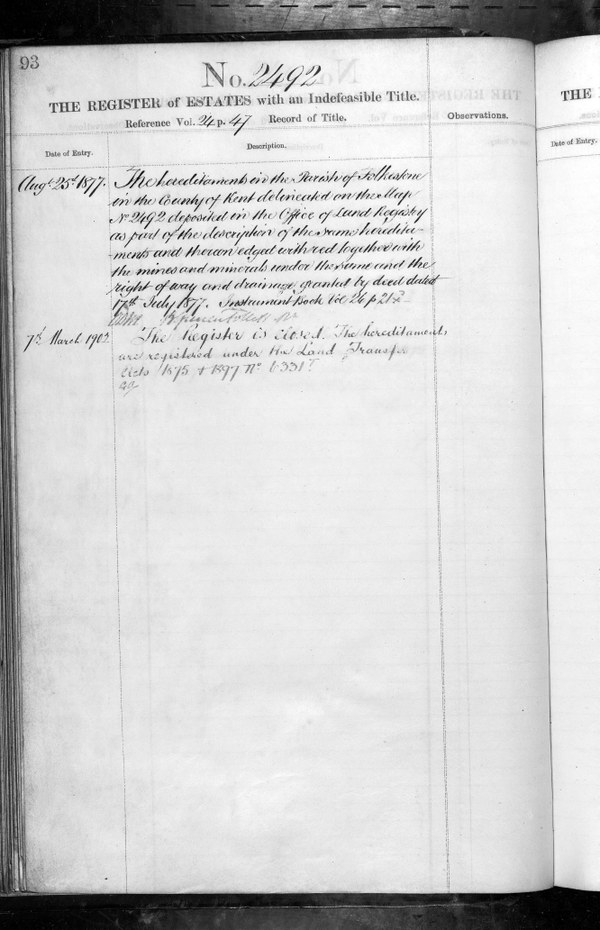 93
No. 2492
THE REGISTER of ESTATES with an Indefeasible Title.
Reference Vol. 24 p. 47 Record of Title.
Observations.
Date of Entry.
Description.
Augt. 25th 1877.
The hereditaments in the Parish of Folkestone
in the County of Kent delineated on the Map
No 2492 deposited in the Office of Land Registry
as part of the description of the same heredita-
-ments and thereon edged with red together with
the mines and minerals under the same and the
right of way and drainage granted by deed dated
17th July 1877. Instrument Book Vol 26 p 212
7th March 1902
The Register is closed. The hereditaments
are registered under the Land Transfer
Acts 1875 & 1897 No 6331
THE
Date of Entry.